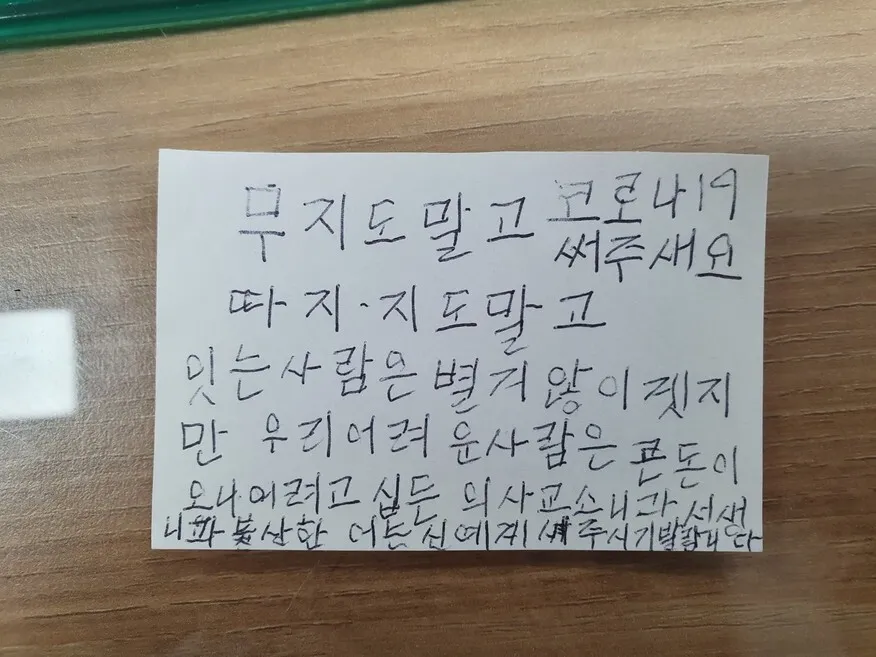 무지도말고 코로나19
써주새요
따지·지도말고
잇는사람은 별거 않이겟지
만 우리어려운사람은 큰돈이
오나 어려고 십든 의사교소니과 서생
니과 불상한 어는신예게 써주시기발랍니다